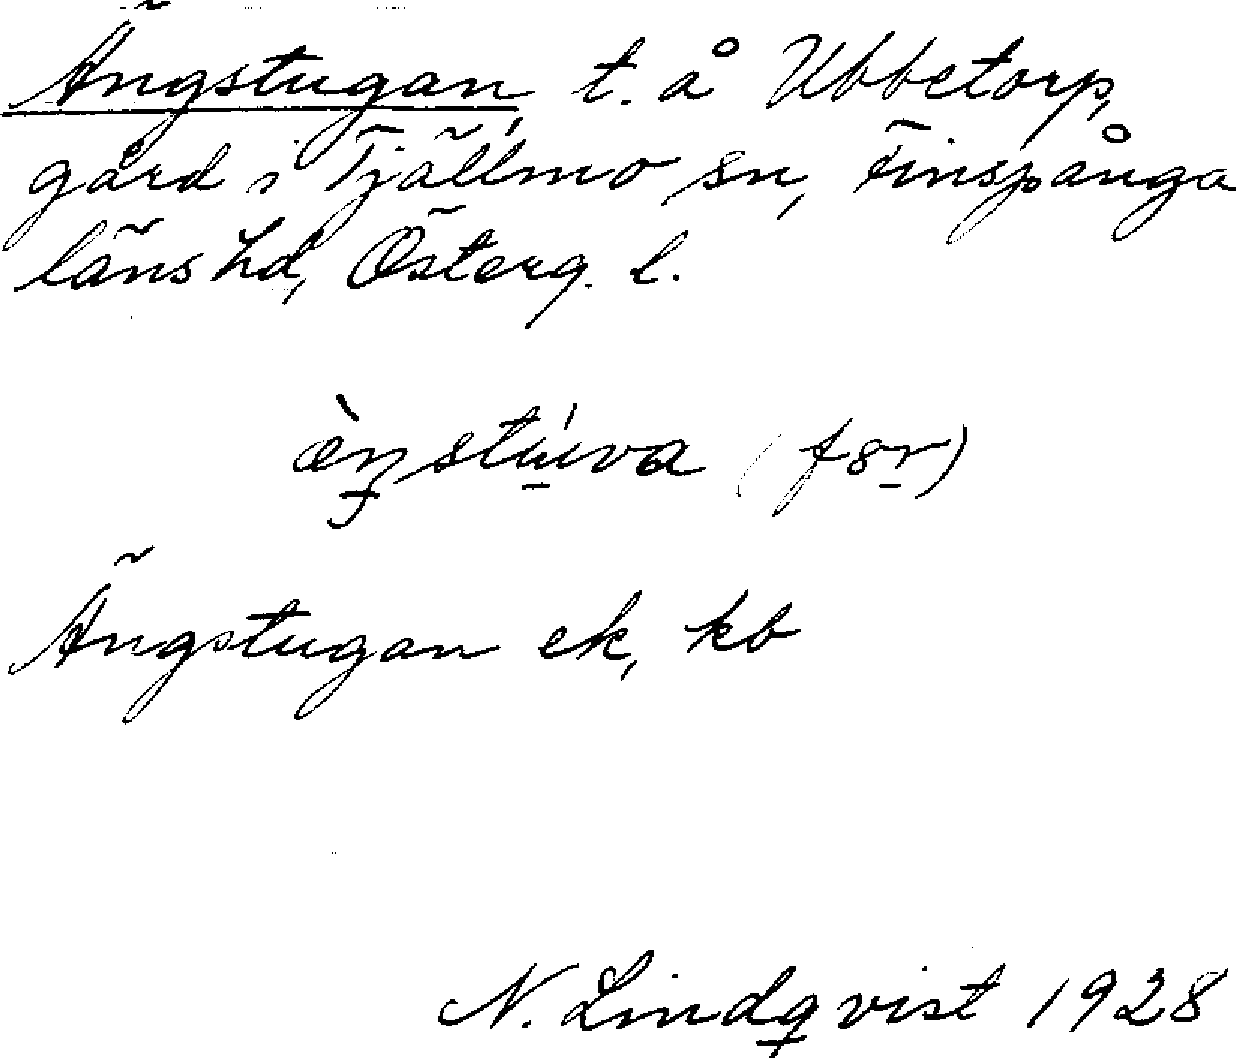 Ängstugan, t. å Ubbetorp,
gård i Tjällmo sn, Finspånga
läns hd, Österg. l.
æ̀ŋstúva (fsr)
Ängstugan ek, kb
N. Lindqvist 1928